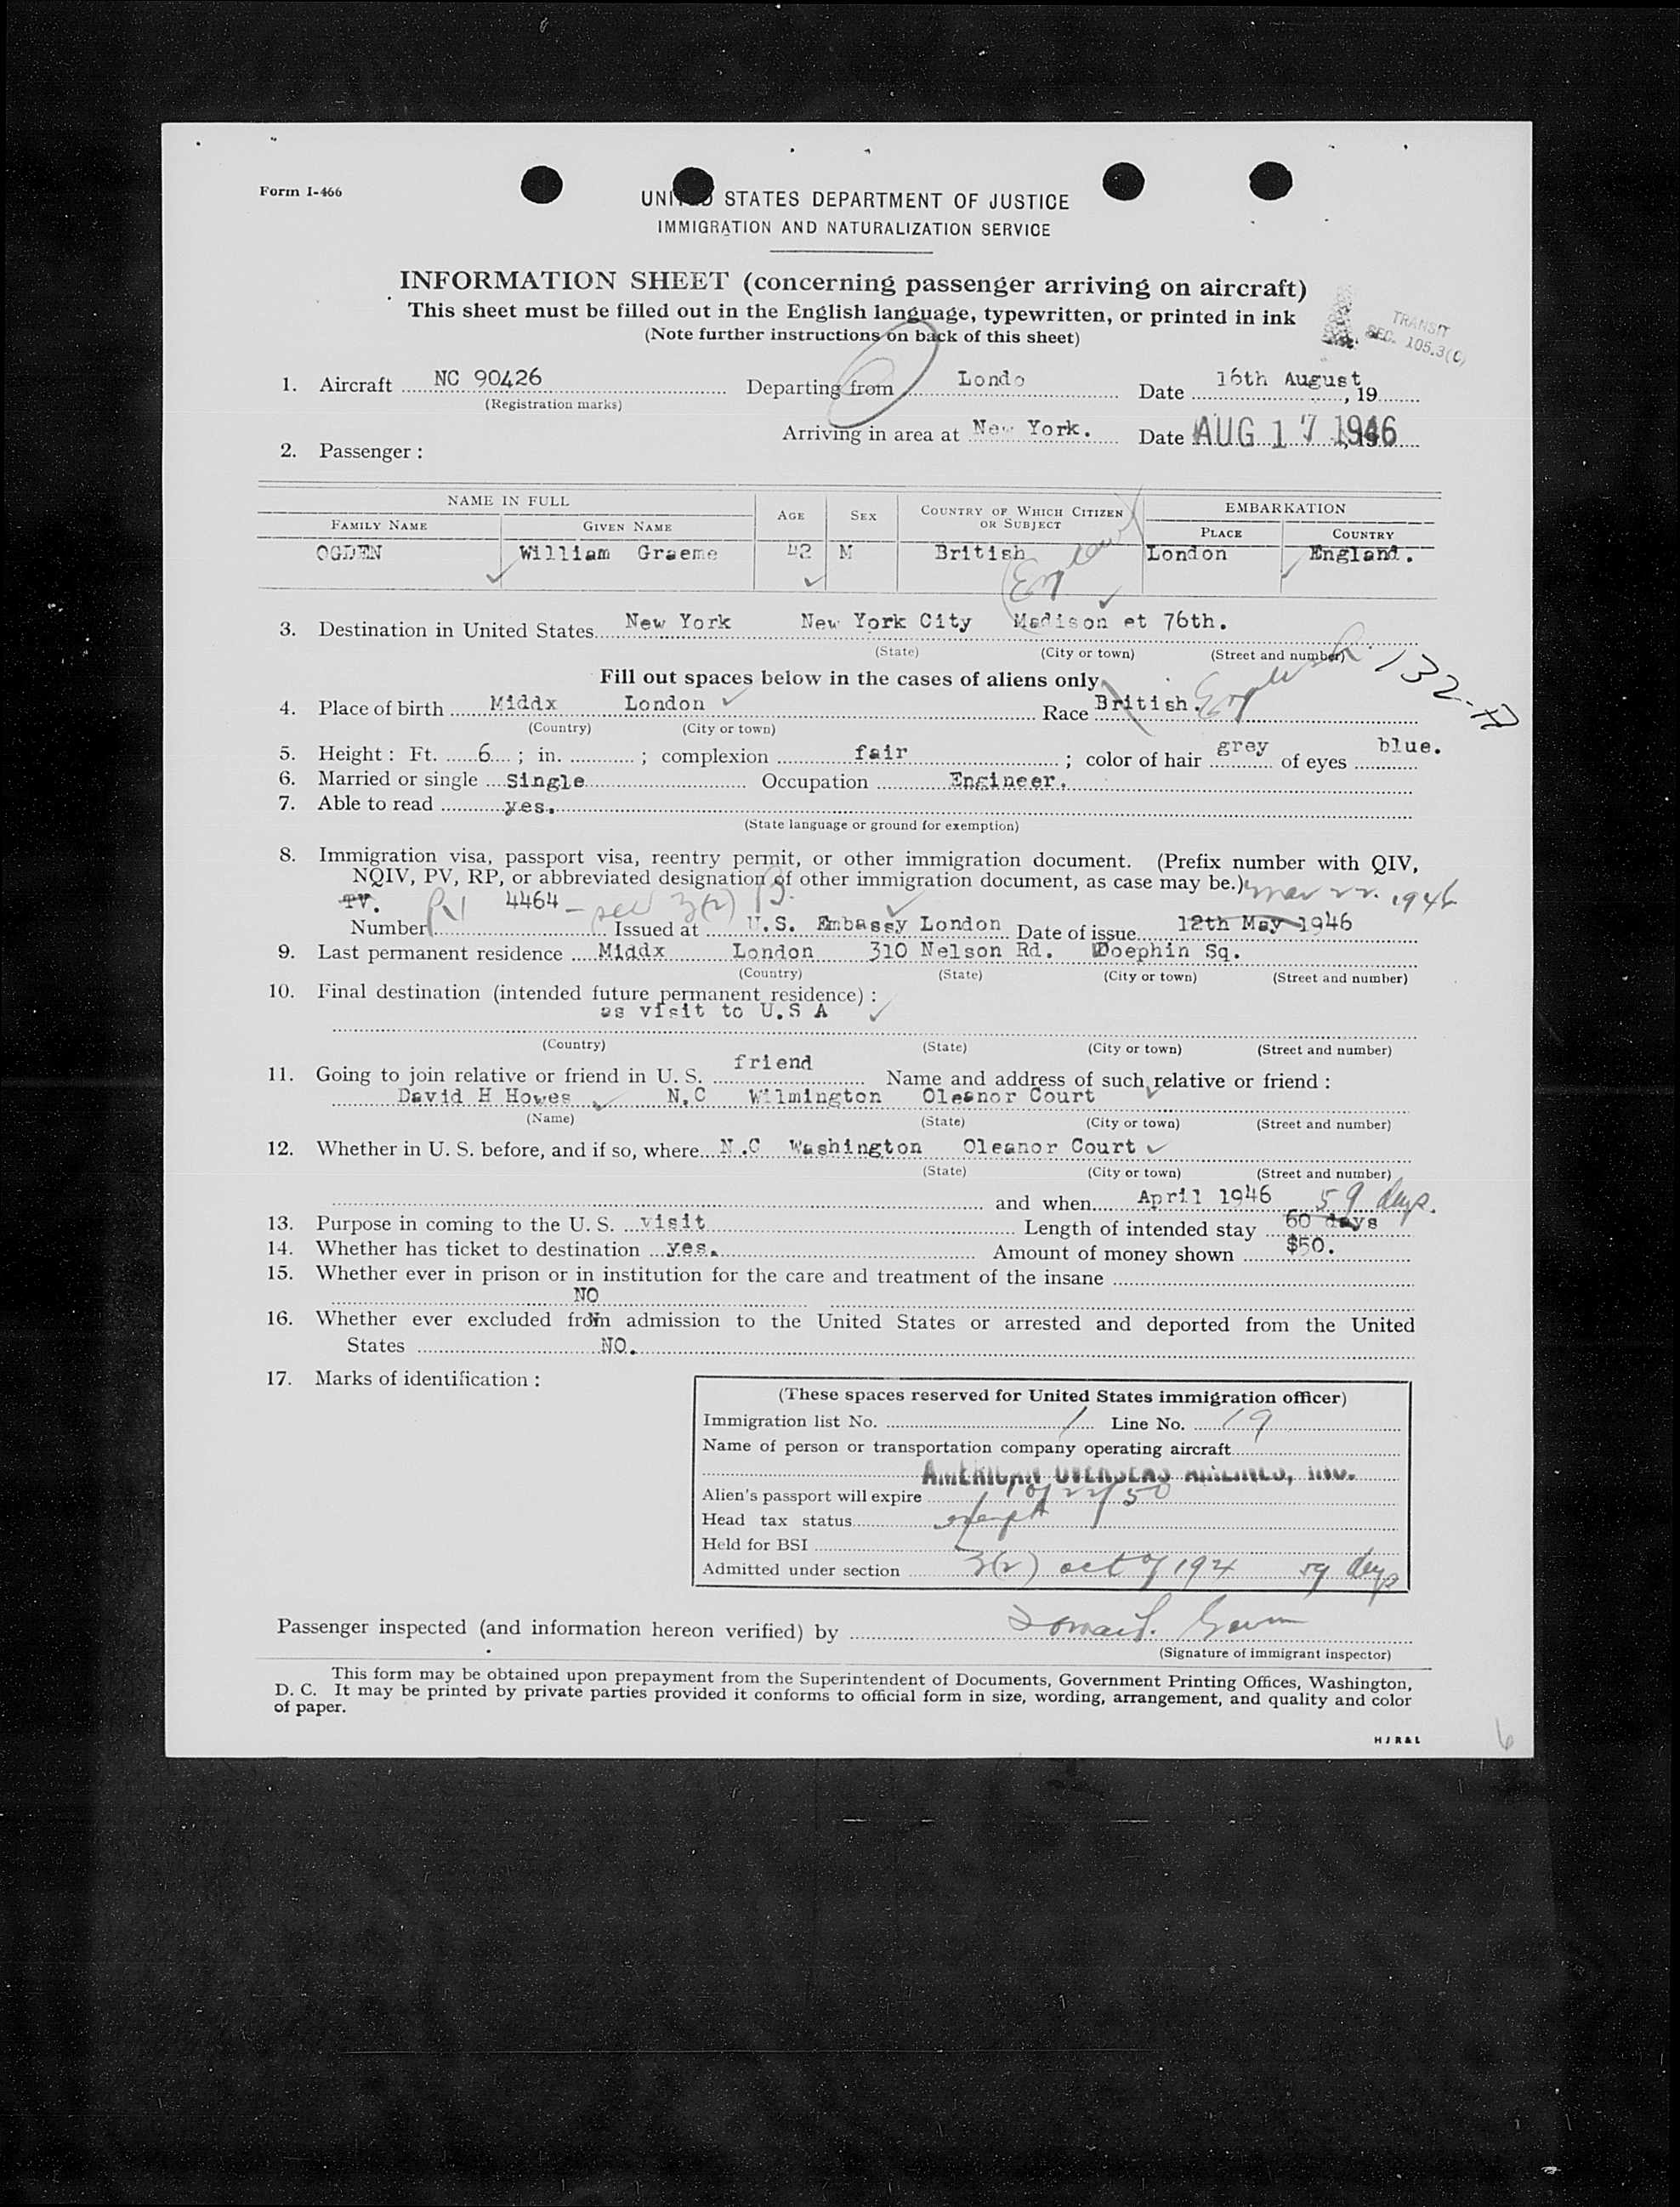 Form I-466
UNITED STATES DEPARTMENT OF JUSTICE
IMMIGRATION AND NATURALIZATION SERVICE
INFORMATION SHEET (concerning passenger arriving on aircraft)
This sheet must be filled out in the English language, typewritten, or printed in ink
(Note further instructions on back of this sheet)
TRANSIT
SEC. 105.3(C)
1. Aircraft NC 90426 Departing from Londo Date 16th August, 19
(Registration marks)
Arriving in area at New York. Date AUG 17 1946
2. Passenger:
NAME IN FULL
FAMILY NAME GIVEN NAME AGE SEX COUNTRY OF WHICH CITIZEN OR SUBJECT EMBARKATION
PLACE COUNTRY
OGDEN William Graeme 42 M British London England.
3. Destination in United States New York New York City Madison et 76th.
(State) (City or town) (Street and number)
132-
Fill out spaces below in the cases of aliens only
4. Place of birth Middx London Race British. English
(Country) (City or town)
5. Height: Ft. 6; in. ; complexion fair; color of hair grey of eyes blue.
6. Married or single Single Occupation Engineer.
7. Able to read yes.
(State language or ground for exemption)
8. Immigration visa, passport visa, reentry permit, or other immigration document. (Prefix number with QIV,
NQIV, PV, RP, or abbreviated designation of other immigration document, as case may be.) Mar 22. 1946
PV. PV 4464 - sec 3(2) B.
Number Issued at U.S. Embassy London Date of issue 12th May 1946
9. Last permanent residence Middx London 310 Nelson Rd. Doephin Sq.
(Country) (State) (City or town) (Street and number)
10. Final destination (intended future permanent residence):
as visit to U.S A
(Country) (State) (City or town) (Street and number)
11. Going to join relative or friend in U. S. friend Name and address of such relative or friend:
David H Howes N.C Wilmington Oleanor Court
(Name) (State) (City or town) (Street and number)
12. Whether in U. S. before, and if so, where N.C Washington Oleanor Court
(State) (City or town) (Street and number)
and when April 1946 59 days.
13. Purpose in coming to the U. S. visit Length of intended stay 60 days
14. Whether has ticket to destination yes. Amount of money shown $50.
15. Whether ever in prison or in institution for the care and treatment of the insane
NO
16. Whether ever excluded from admission to the United States or arrested and deported from the United
States NO.
17. Marks of identification:
(These spaces reserved for United States immigration officer)
Immigration list No. 1 Line No. 19
Name of person or transportation company operating aircraft
AMERICAN OVERSEAS AIRLINES, INC.
Alien's passport will expire 10/22/50
Head tax status exempt
Held for BSI
Admitted under section 3(2) act of 1924 59 days
Passenger inspected (and information hereon verified) by
(Signature of immigrant inspector)
This form may be obtained upon prepayment from the Superintendent of Documents, Government Printing Offices, Washington,
D. C. It may be printed by private parties provided it conforms to official form in size, wording, arrangement, and quality and color
of paper.
H J R & L
6